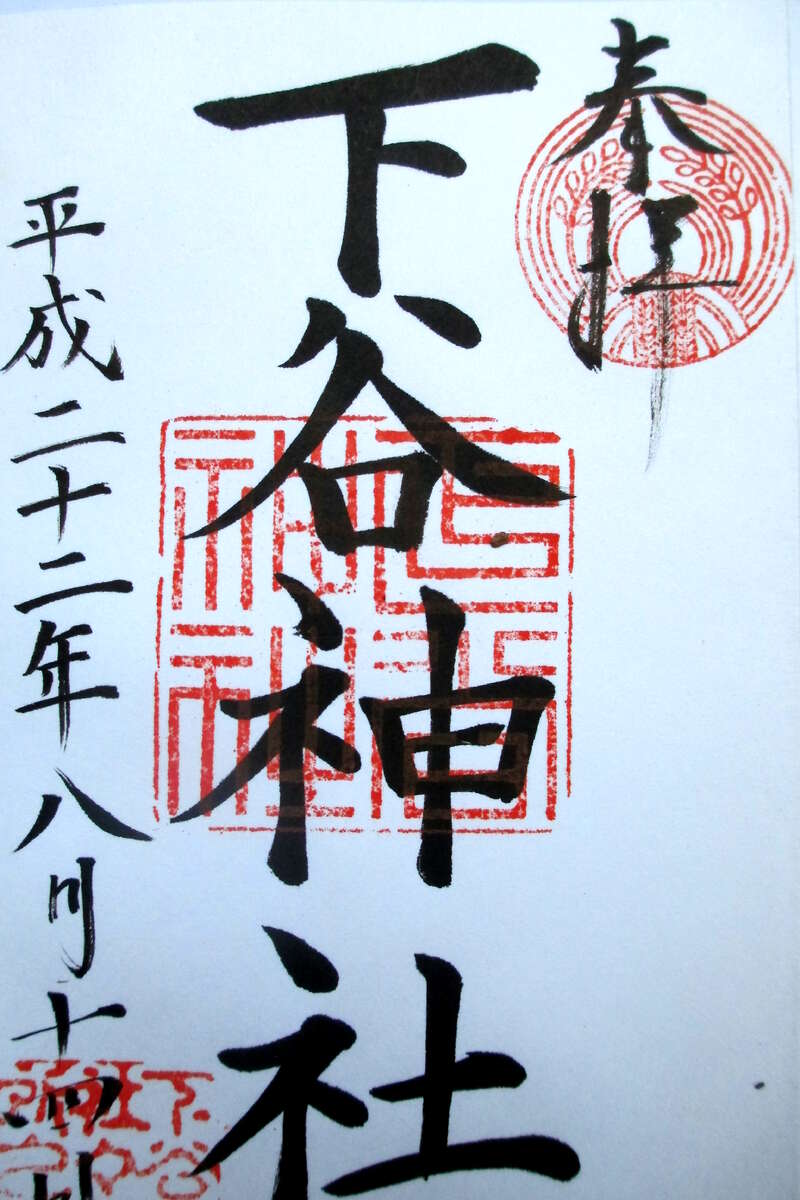 奉拝
下谷神社
平成二十二年八月十四日